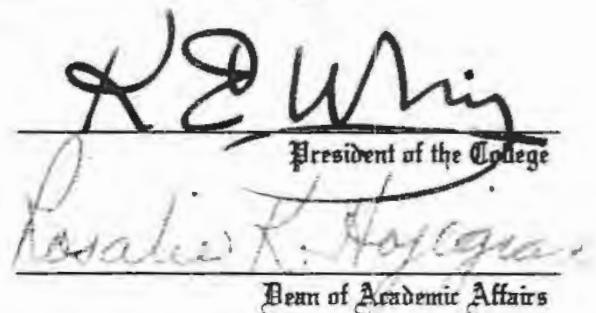 K E
President of the College
Rosalie K.
Dean of Academic Affairs